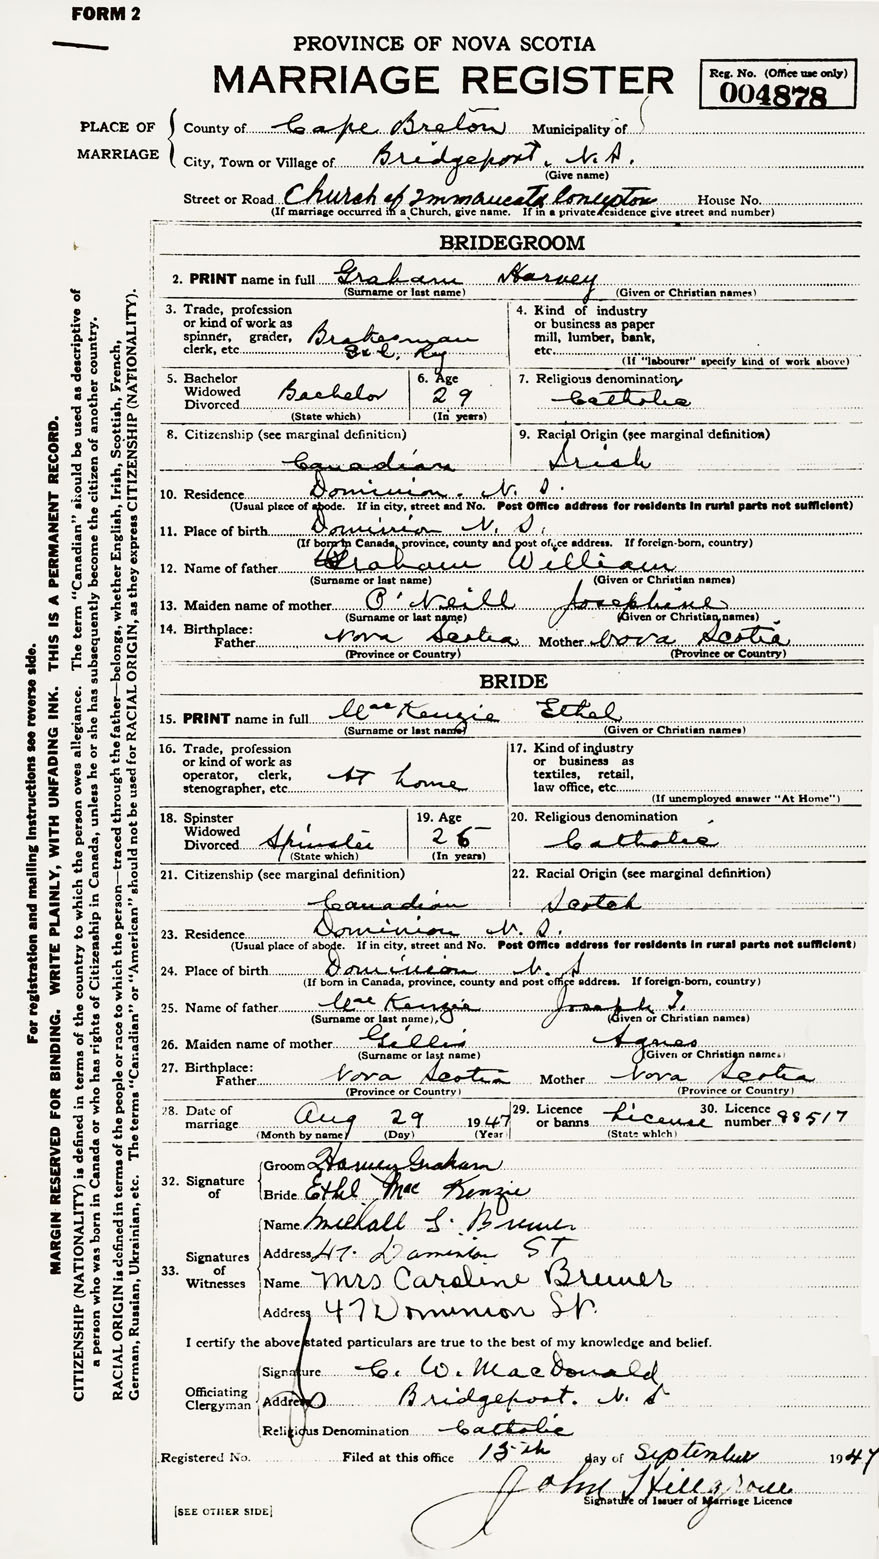 FORM 2
PROVINCE OF NOVA SCOTIA
MARRIAGE REGISTER
Reg. No. (Office use only)
004878
PLACE OF MARRIAGE
County of Cape Breton Municipality of
City, Town or Village of Bridgeport, N.S.
(Give name)
Street or Road Church of Immaculate House No.
(If marriage occurred in a Church, give name. If in a private residence give street and number)
BRIDEGROOM
2. PRINT name in full Graham Harvey
(Surname or last name) (Given or Christian names)
3. Trade, profession or kind of work as spinner, grader, clerk, etc. Brakesman S&L Ry
4. Kind of industry or business as paper mill, lumber, bank, etc.
(If "labourer" specify kind of work above)
5. Bachelor Widowed Divorced Bachelor
(State which)
6. Age 29
(In years)
7. Religious denomination
Catholic
8. Citizenship (see marginal definition)
Canadian
9. Racial Origin (see marginal definition)
Irish
10. Residence Dominion. N. S.
(Usual place of abode. If in city, street and No. Post Office address for residents in rural parts not sufficient)
11. Place of birth Dominion N. S.
(If born in Canada, province, county and post office address. If foreign-born, country)
12. Name of father Graham William
(Surname or last name) (Given or Christian names)
13. Maiden name of mother O'Neill Josephine
(Surname or last name) (Given or Christian names)
14. Birthplace: Father Nova Scotia Mother Nova Scotia
(Province or Country) (Province or Country)
BRIDE
15. PRINT name in full MacKenzie Ethel
(Surname or last name) (Given or Christian names)
16. Trade, profession or kind of work as operator, clerk, stenographer, etc. At home
17. Kind of industry or business as textiles, retail, law office, etc.
(If unemployed answer "At Home")
18. Spinster Widowed Divorced Spinster
(State which)
19. Age 26
(In years)
20. Religious denomination
Catholic
21. Citizenship (see marginal definition)
Canadian
22. Racial Origin (see marginal definition)
Scotch
23. Residence Dominion N. S.
(Usual place of abode. If in city, street and No. Post Office address for residents in rural parts not sufficient)
24. Place of birth Dominion N. S
(If born in Canada, province, county and post office address. If foreign-born, country)
25. Name of father MacKenzie Joseph
(Surname or last name), (Given or Christian names)
26. Maiden name of mother Gillis Agnes
(Surname or last name) (Given or Christian names)
27. Birthplace: Father Nova Scotia Mother Nova Scotia
(Province or Country) (Province or Country)
28. Date of marriage Aug 29 1947
(Month by name) (Day) (Year)
29. Licence or banns License
(State which)
30. Licence number 88517
32. Signature of
Groom Harvey Graham
Bride Ethel MacKenzie
33. Signatures of Witnesses
Name Michall Brewer
Address 47. Dominion ST
Name Mrs Caroline Brewer
Address 47 Dominion St.
I certify the above stated particulars are true to the best of my knowledge and belief.
Officiating Clergyman
Signature C. W. MacDonald
Address Bridgeport. N. S
Religious Denomination Catholic
Registered No. Filed at this office 15th day of September 1947
John
Signature of Issuer of Marriage Licence
[SEE OTHER SIDE]
For registration and mailing instructions see reverse side.
MARGIN RESERVED FOR BINDING. WRITE PLAINLY, WITH UNFADING INK. THIS IS A PERMANENT RECORD.
CITIZENSHIP (NATIONALITY) is defined in terms of the country to which the person owes allegiance. The term "Canadian" should be used as descriptive of
a person who was born in Canada or who has rights of Citizenship in Canada, unless he or she has subsequently become the citizen of another country.
RACIAL ORIGIN is defined in terms of the people or race to which the person—traced through the father—belongs, whether English, Irish, Scottish, French,
German, Russian, Ukrainian, etc. The terms "Canadian" or "American" should not be used for RACIAL ORIGIN, as they express CITIZENSHIP (NATIONALITY).